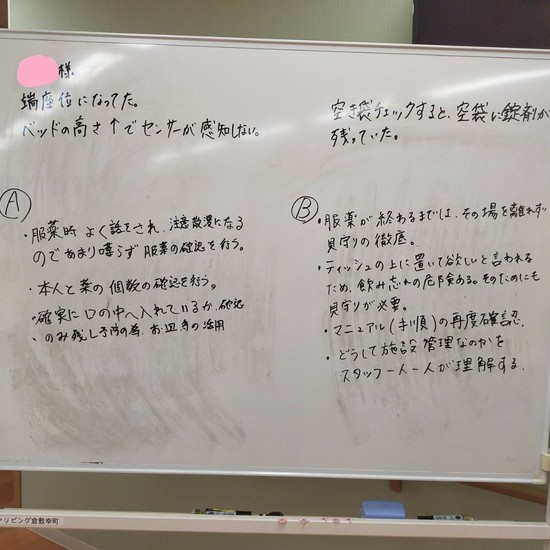 様
端座位になってた。
ベッドの高さ↑でセンサーが感知しない。
空き袋チェックすると、空袋に錠剤が
残っていた。
Ⓐ
・服薬時よく話をされ、注意散漫になる
のであまり喋らず服薬の確認を行う。
・本人と薬の個数の確認を行う。
・確実に口の中へ入れているか、確認
・のみ残し予防の為、お皿等の活用
Ⓑ
・服薬が終わるまでは、その場を離れず
見守りの徹底。
・ティッシュの上に置いて欲しいと言われる
ため、飲み忘れの危険ある。そのためにも
見守りが必要。
・マニュアル(手順)の再度確認.
・どうして施設管理なのかを
スタッフ一人一人が理解する.
リビング倉敷幸町